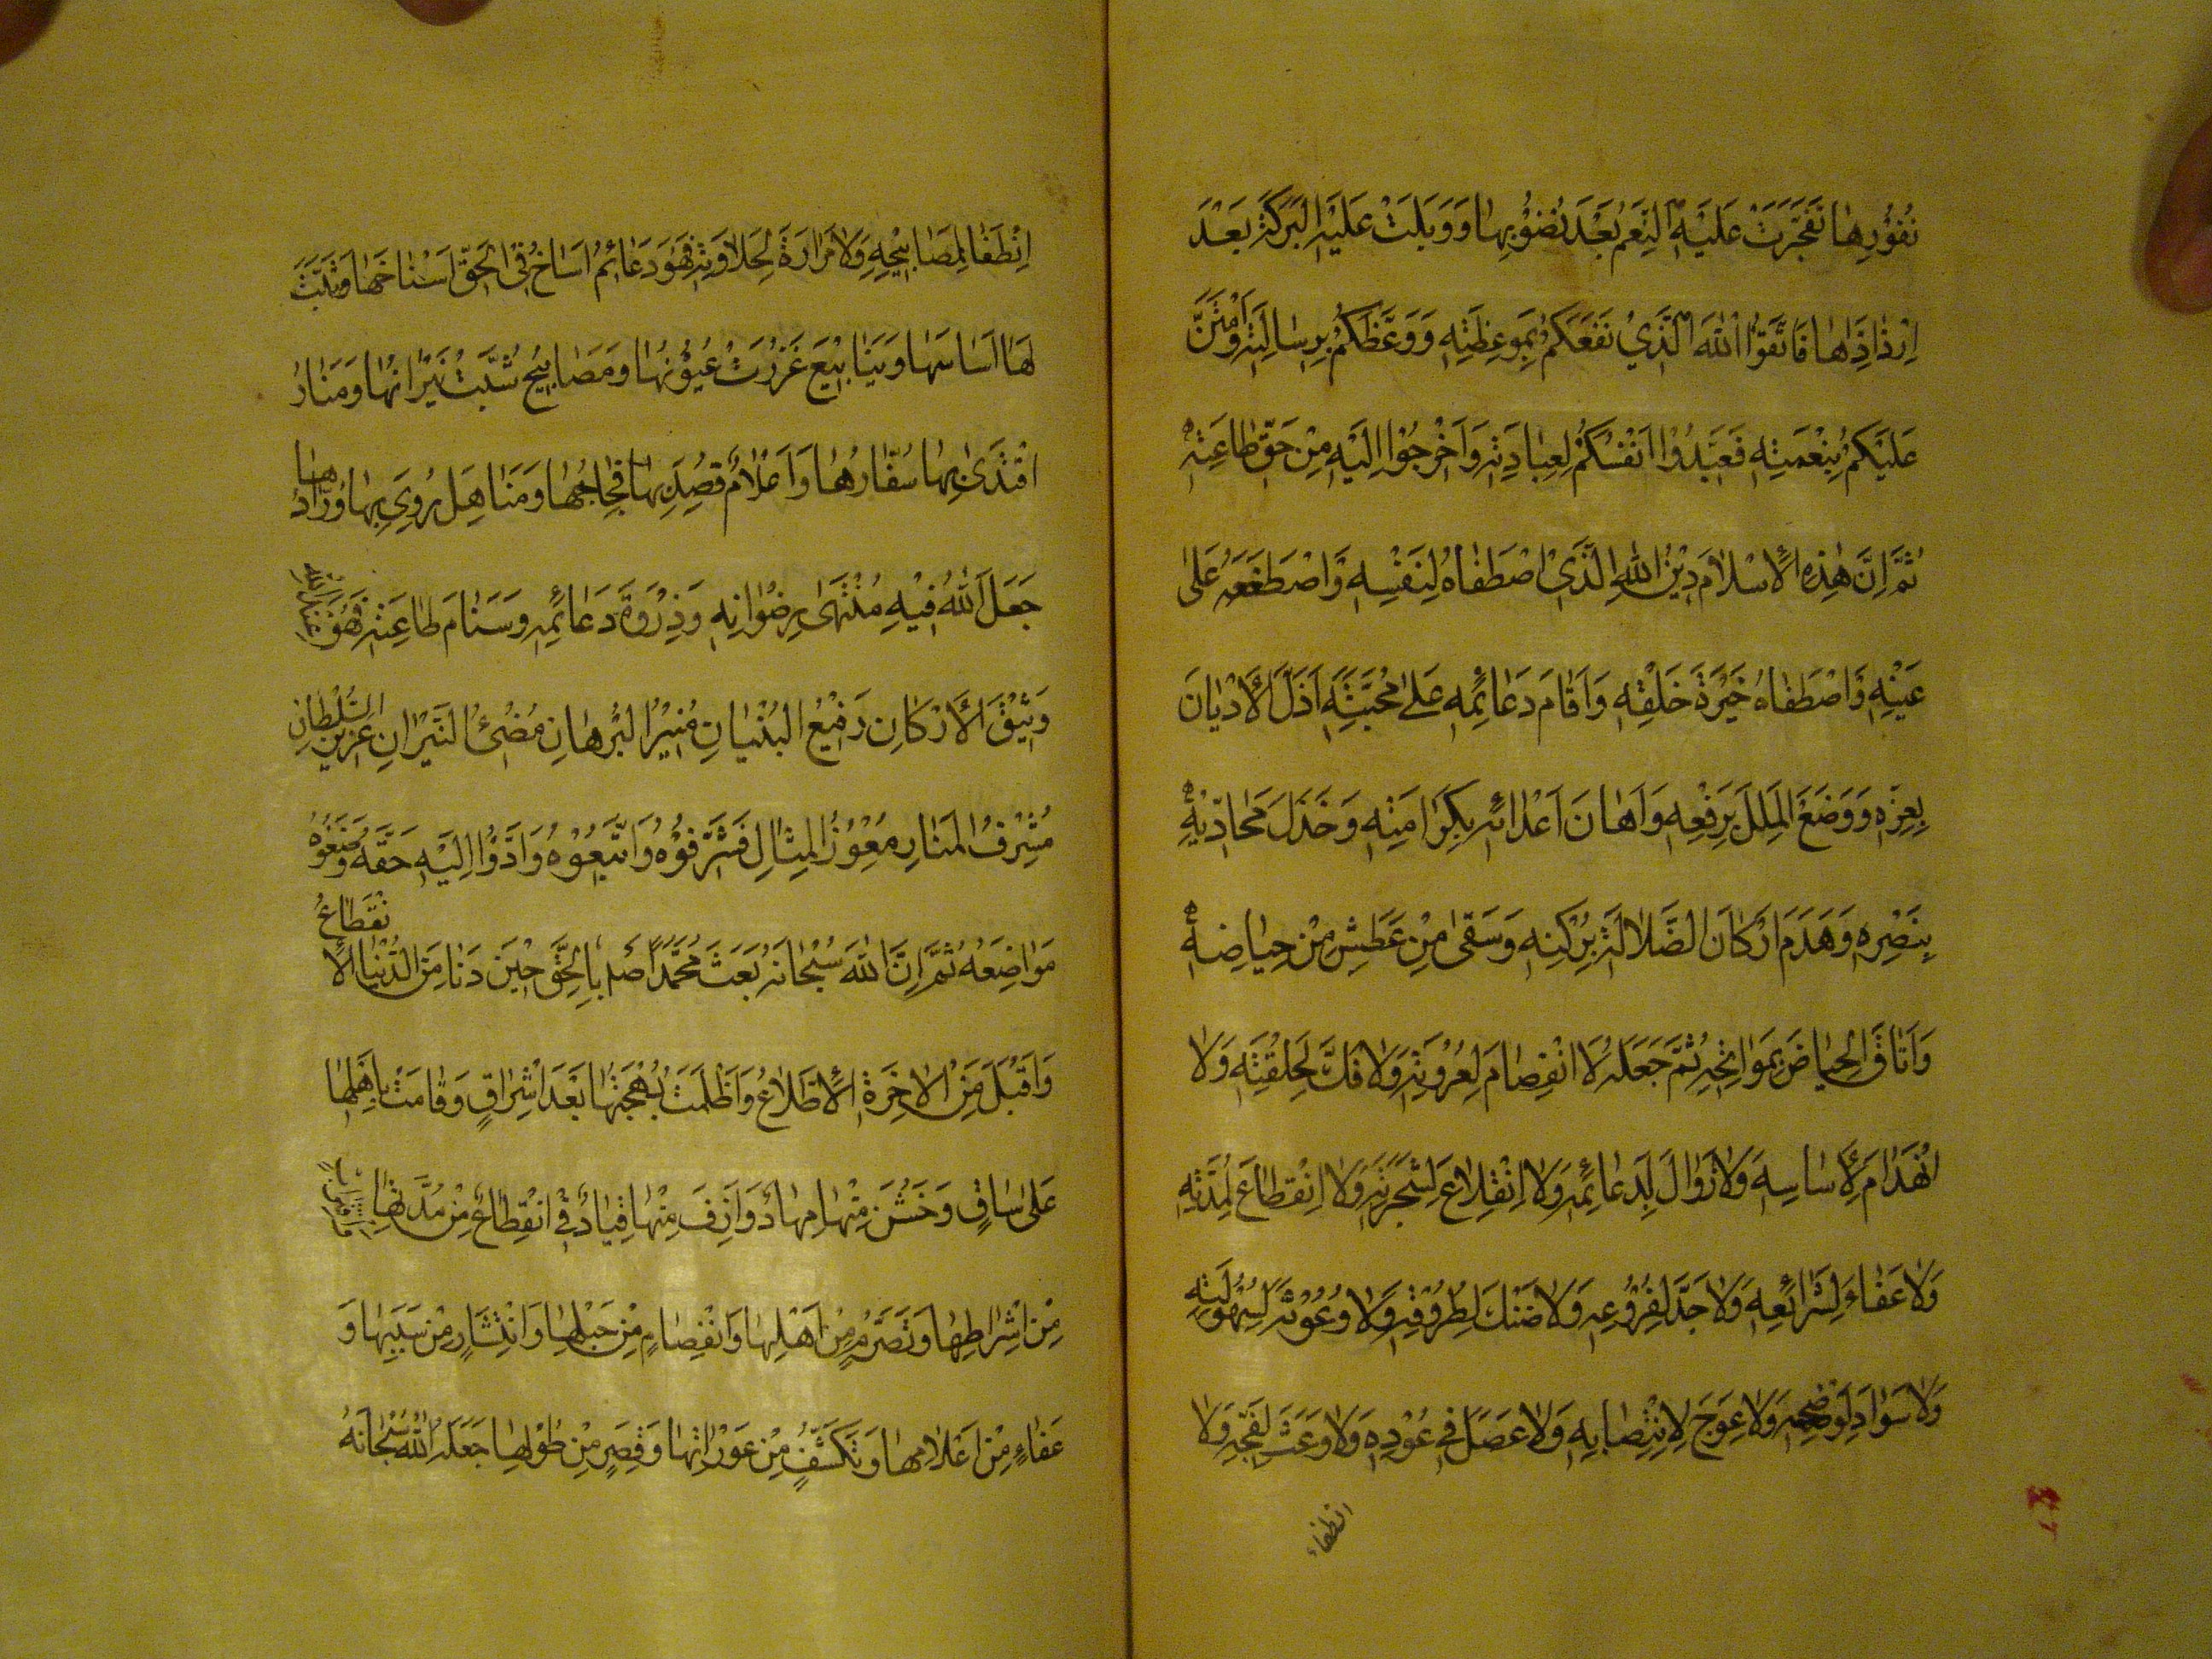 نُفُوْرِهَا تَفَجَّرَتْ عَلَيْهِ النِّعَمُ بَعْدَ نُضُوْبِهَا وَوَبَلَتْ عَلَيْهِ الْبَرَكَةُ بَعْدَ
اِرْذَاذِهَا فَاتَّقُوْا اللهَ الَّذِيْ نَفَعَكُمْ بِمَوْعِظَتِهِ وَوَعَظَكُمْ بِرِسَالَتِهِ وَامْتَنَّ
عَلَيْكُمْ بِنِعْمَتِهِ فَعَبِّدُوْا اَنْفُسَكُمْ لِعِبَادَتِهِ وَاَخْرِجُوْا اِلَيْهِ مِنْ حَقِّ طَاعَتِهِ
ثُمَّ اِنَّ هٰذِهِ الْاِسْلَامَ دِيْنُ اللهِ الَّذِيْ اصْطَفَاهُ لِنَفْسِهِ وَاصْطَنَعَهُ عَلٰى
عَيْنِهِ وَاصْطَفَاهُ خَيْرَةَ خَلْقِهِ وَاَقَامَ دَعَائِمَهُ عَلٰى مَحَبَّتِهِ اَذَلَّ الْاَدْيَانَ
بِعِزِّهِ وَوَضَعَ الْمِلَلَ بِرَفْعِهِ وَاَهَانَ اَعْدَائَهُ بِكَرَامَتِهِ وَخَذَلَ مُحَادِّيْهِ
بِنَصْرِهِ وَهَدَمَ اَرْكَانَ الضَّلَالَةِ بِرُكْنِهِ وَسَقٰى مِنْ عَطَشِ مِنْ حِيَاضِهِ
وَاَتْاَقَ الْحِيَاضَ بِمَوَاتِحِهِ ثُمَّ جَعَلَهُ لَا انْفِصَامَ لِعُرْوَتِهِ وَلَا فَكَّ لِحَلْقَتِهِ وَلَا
انْهِدَامَ لِاَسَاسِهِ وَلَا زَوَالَ لِدَعَائِمِهِ وَلَا اِنْقِلَاعَ لِشَجَرَتِهِ وَلَا اِنْقِطَاعَ لِمُدَّتِهِ
وَلَا عَفَاءَ لِشَرَائِعِهِ وَلَا جَدَّ لِفُرُوْعِهِ وَلَا ضَنْكَ لِطُرُقِهِ وَلَا وُعُوْثَةَ لِسُهُوْلَتِهِ
وَلَا سَوَادَ لِوَضَحِهِ وَلَا عِوَجَ لِانْتِصَابِهِ وَلَا عَصَلَ فِيْ عُوْدِهِ وَلَا وَعَثَ لِفَجِّهِ وَلَا
انطفاء
اِنْطَفَا لِمَصَابِيْحِهِ وَلَا مَرَارَةَ لِحَلَاوَتِهِ فَهُوَ دَعَائِمُ اَسَاخَ فِي الْحَقِّ اَسْنَاخَهَا وَثَبَّتَ
لَهَا اَسَاسَهَا وَيَنَابِيْعُ غَزُرَتْ عُيُوْنُهَا وَمَصَابِيْحُ شُبَّتْ نِيْرَانُهَا وَمَنَارُ
اقْتَدٰى بِهَا سُفَّارُهَا وَاَعْلَامٌ قُصِدَ بِهَا فِجَاجُهَا وَمَنَاهِلُ رُوِيَ بِهَا وُرَّادُهَا
جَعَلَ اللهُ فِيْهِ مُنْتَهٰى رِضْوَانِهِ وَذِرْوَةَ دَعَائِمِهِ وَسَنَامَ طَاعَتِهِ فَهُوَ عِنْدَ اللهِ
وَثِيْقُ الْاَرْكَانِ رَفِيْعُ الْبُنْيَانِ مُنِيْرُ الْبُرْهَانِ مُضِيْئُ النِّيْرَانِ عَزِيْزُ السُّلْطَانِ
مُشْرِفُ الْمَنَارِ مُعْوِزُ الْمِثَالِ فَشَرِّفُوْهُ وَاتَّبِعُوْهُ وَاَدُّوْا اِلَيْهِ حَقَّهُ وَضَعُوْهُ
مَوَاضِعَهُ ثُمَّ اِنَّ اللهَ سُبْحَانَهُ بَعَثَ مُحَمَّدًا صلم بِالْحَقِّ حِيْنَ دَنَا مِنَ الدُّنْيَا الْاِنْقِطَاعُ
وَاَقْبَلَ مِنَ الْاٰخِرَةِ الْاِطِّلَاعُ وَاَظْلَمَتْ بَهْجَتُهَا بَعْدَ اِشْرَاقٍ وَقَامَتْ بِاَهْلِهَا
عَلٰى سَاقٍ وَخَشُنَ مِنْهَا مِهَادٌ وَاَزِفَ مِنْهَا قِيَادٌ فِيْ انْقِطَاعٍ مِنْ مُدَّتِهَا
مِنْ اَشْرَاطِهَا وَتَصَرُّمٍ مِنْ اَهْلِهَا وَانْفِصَامٍ مِنْ حَبْلِهَا وَانْتِشَارٍ مِنْ سَبَبِهَا وَ
عَفَاءٍ مِنْ اَعْلَامِهَا وَتَكَشُّفٍ مِنْ عَوْرَاتِهَا وَقِصَرٍ مِنْ طُوْلِهَا جَعَلَهُ اللهُ سُبْحَانَهُ